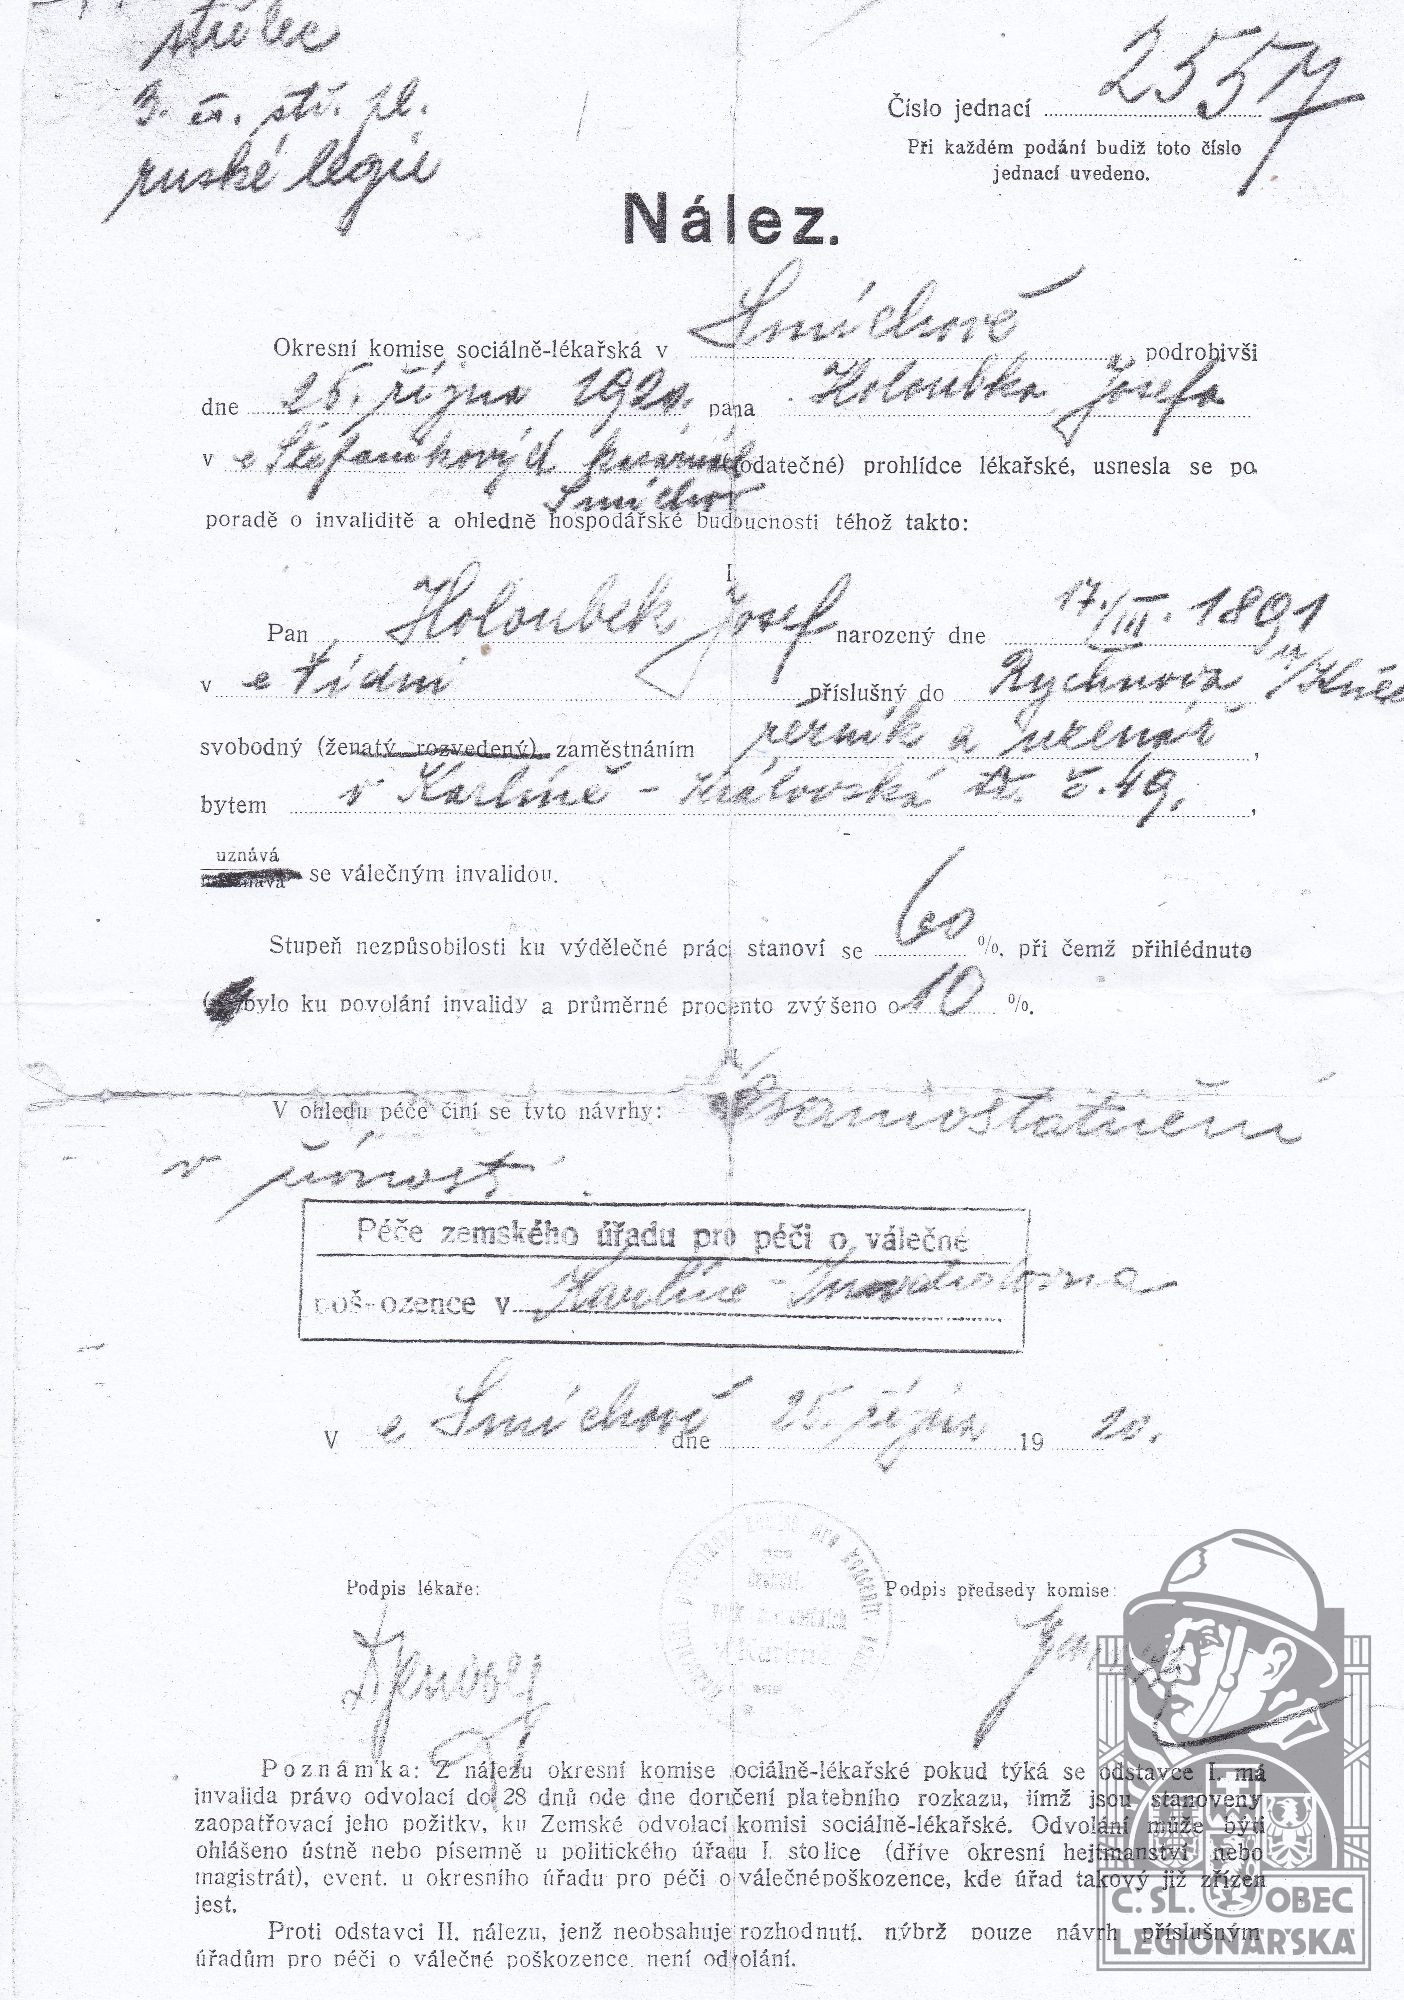 střelec
3. čs. stř. pl.
ruské légie
Číslo jednací 2557
Při každém podání budiž toto číslo
jednací uvedeno.
Nález.
Okresní komise sociálně-lékařská v Smíchově podrobivši
dne 25. října 1920. pana Holoubka Josefa
v e Štefanikových kasárnách (dodatečné) prohlídce lékařské, usnesla se po
Smíchov
poradě o invaliditě a ohledně hospodářské budoucnosti téhož takto:
I.
Pan Holoubek Josef narozený dne 17./III. 1891
v e Vídni příslušný do Rychnova n/Kněž
svobodný (ženatý rozvedený) zaměstnáním perník a uzenář,
bytem v Karlíně - Královská tř. č. 49.,
uznává
neuznává se válečným invalidou.
Stupeň nezpůsobilosti ku výdělečné práci stanoví se 60 %, při čemž přihlédnuto
bylo ku povolání invalidy a průměrné procento zvýšeno o 10 %.
V ohledu péče činí se tyto návrhy: osamostatnění
v
Péče zemského úřadu pro péči o válečné
poš-ozence v Karlíně - Invalidovna
V e Smíchově dne 25. října 1920.
Podpis lékaře:
Podpis předsedy komise:
Poznámka: Z nálezu okresní komise sociálně-lékařské pokud týká se odstavce I. má
invalida právo odvolací do 28 dnů ode dne doručení platebního rozkazu, jímž jsou stanoveny
zaopatřovací jeho požitky, ku Zemské odvolací komisi sociálně-lékařské. Odvolání může býti
ohlášeno ústně nebo písemně u politického úřadu I. stolice (dříve okresní hejtmanství nebo
magistrát), event. u okresního úřadu pro péči o válečnépoškozence, kde úřad takový již zřízen
jest.
Proti odstavci II. nálezu, jenž neobsahuje rozhodnutí, nýbrž pouze návrh příslušným
úřadům pro péči o válečné poškozence, není odvolání.
Č. SL. OBEC
LEGIONÁŘSKÁ